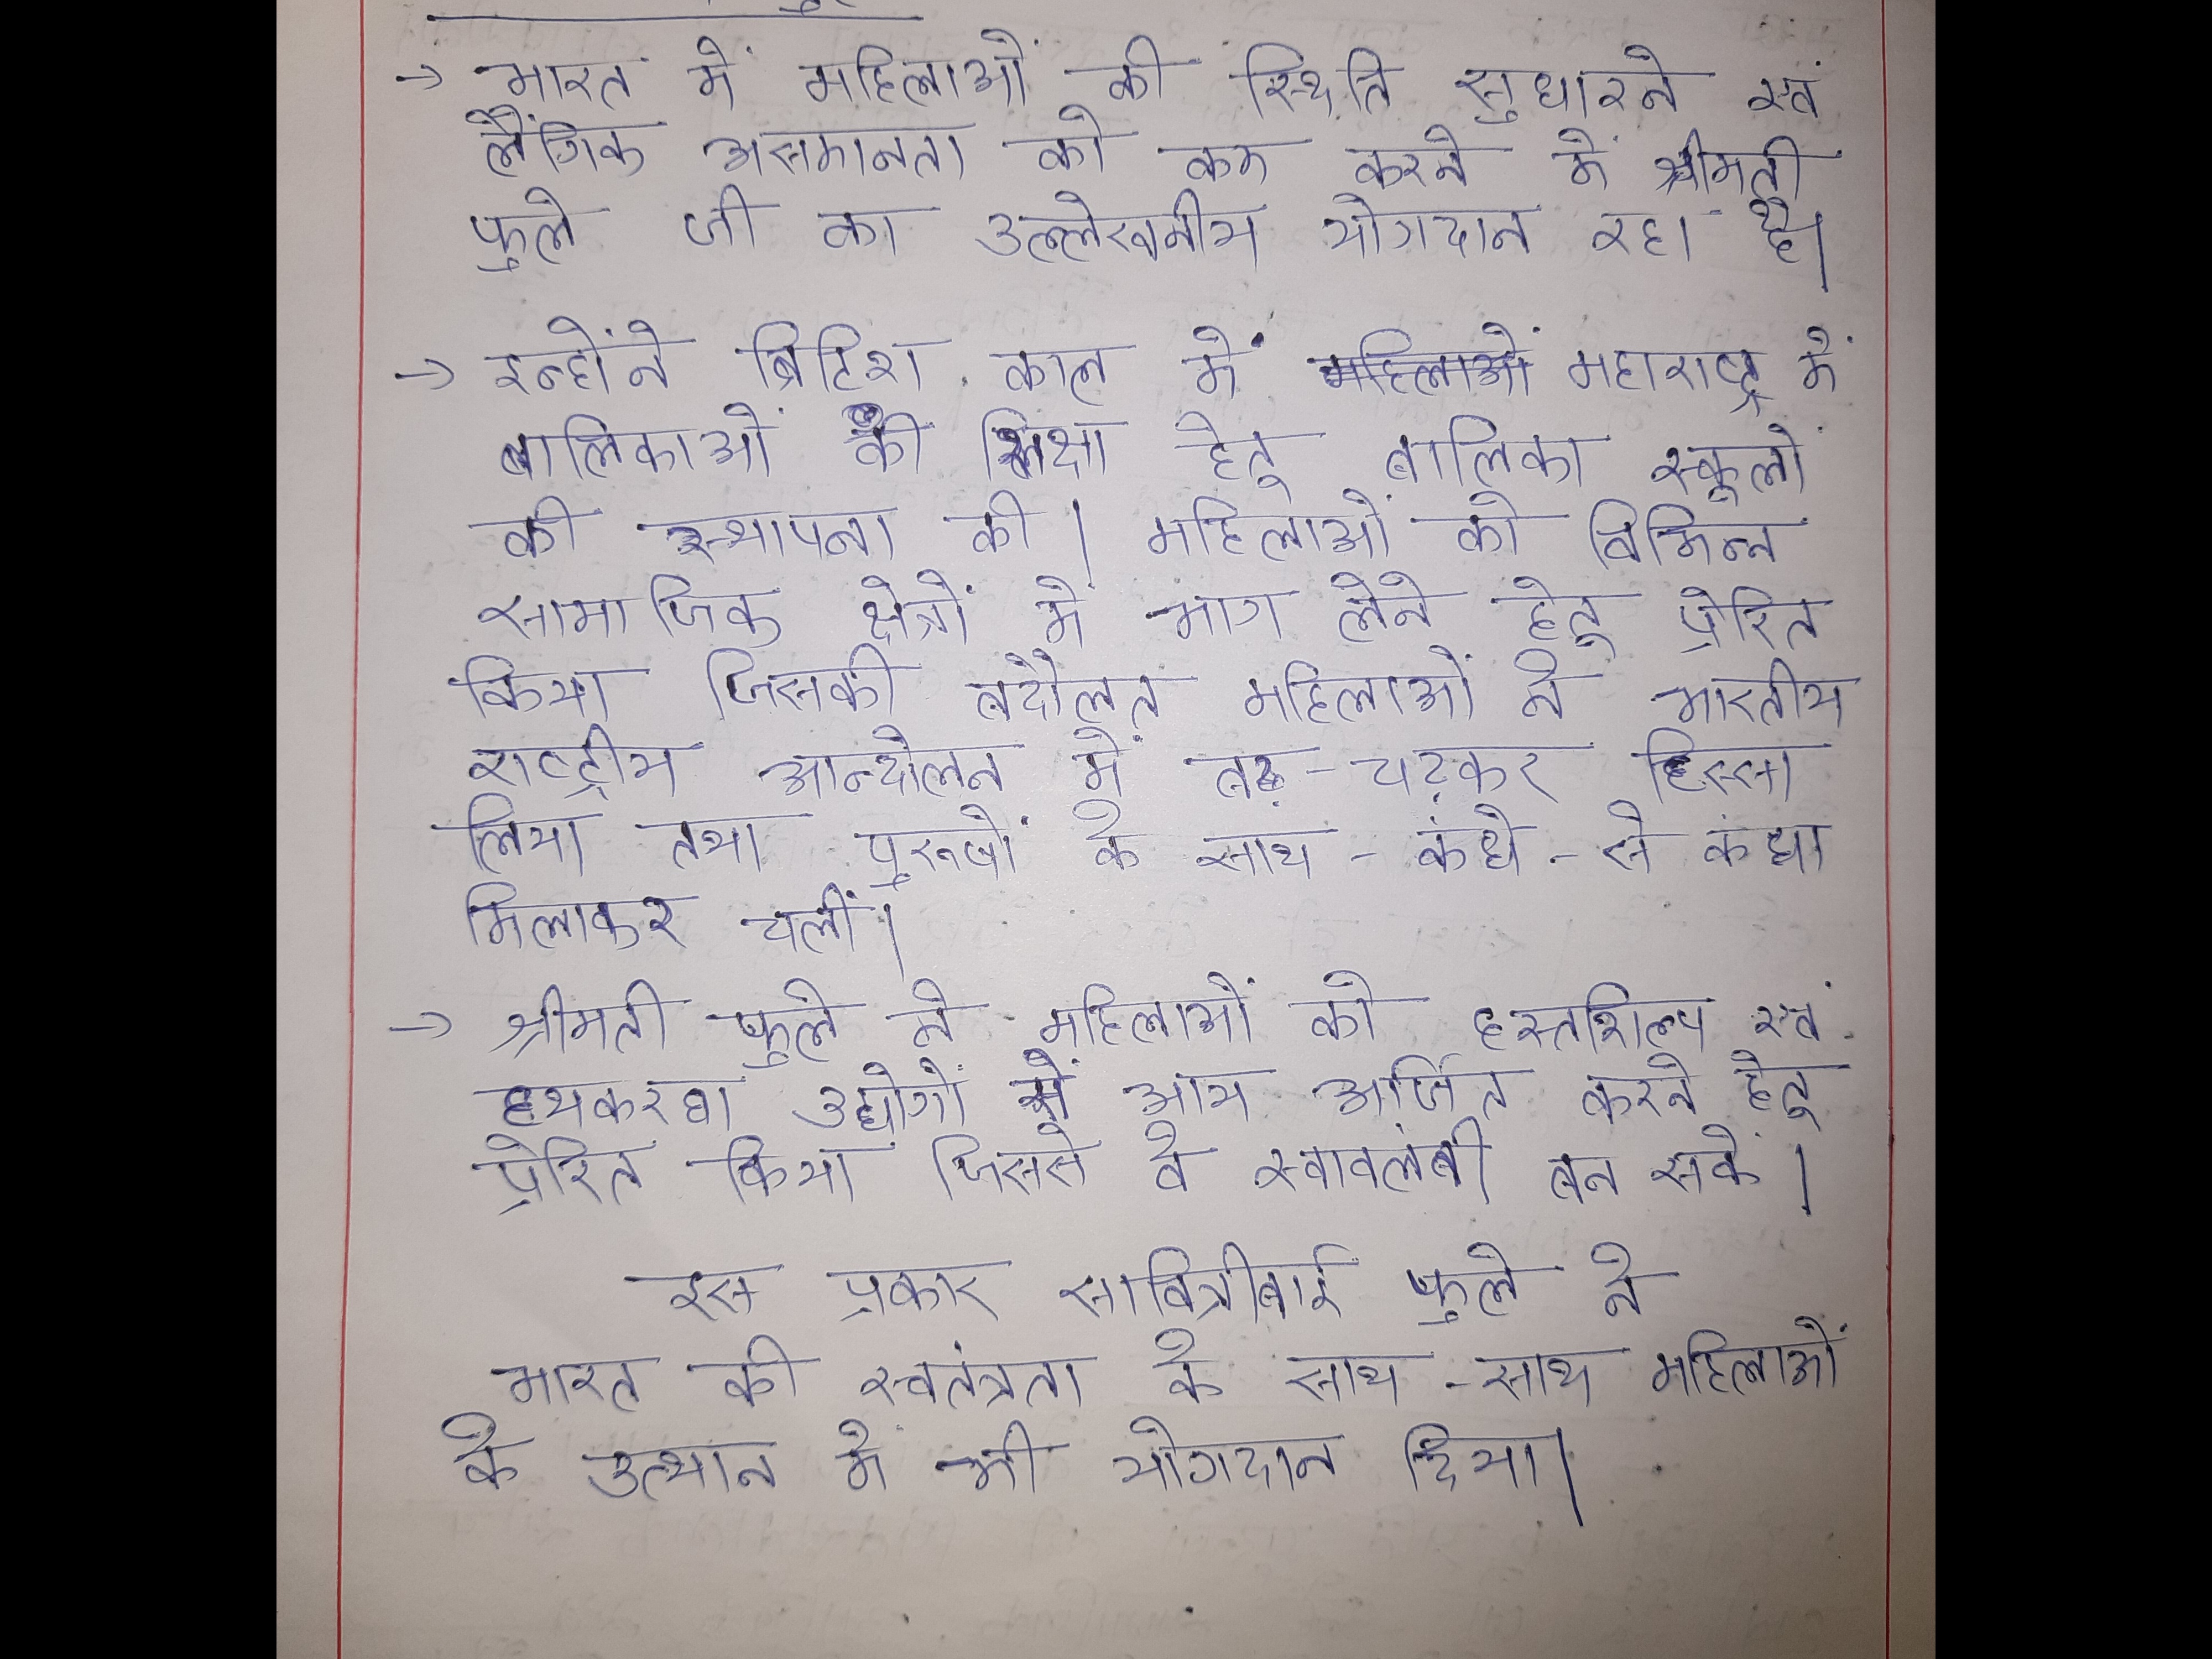 → भारत में महिलाओं की स्थिति सुधारने एवं
लैंगिक असमानता को कम करने में श्रीमती
फुले जी का उल्लेखनीय योगदान रहा है।
→ इन्होंने ब्रिटिश काल में महिलाओं महाराष्ट्र में
बालिकाओं की शिक्षा हेतु बालिका स्कूलों
की स्थापना की। महिलाओं को विभिन्न
सामाजिक क्षेत्रों में भाग लेने हेतु प्रेरित
किया जिसकी बदौलत महिलाओं ने भारतीय
राष्ट्रीय आन्दोलन में बढ़-चढ़कर हिस्सा
लिया तथा पुरूषों के साथ - कंधे - से कंधा
मिलाकर चलीं।
→ श्रीमती फुले ने महिलाओं को हस्तशिल्प एवं
हथकरघा उद्योगों से आय अर्जित करने हेतु
प्रेरित किया जिससे वे स्वावलंबी बन सकें।
इस प्रकार सावित्रीबाई फुले ने
भारत की स्वतंत्रता के साथ - साथ महिलाओं
के उत्थान में भी योगदान दिया।